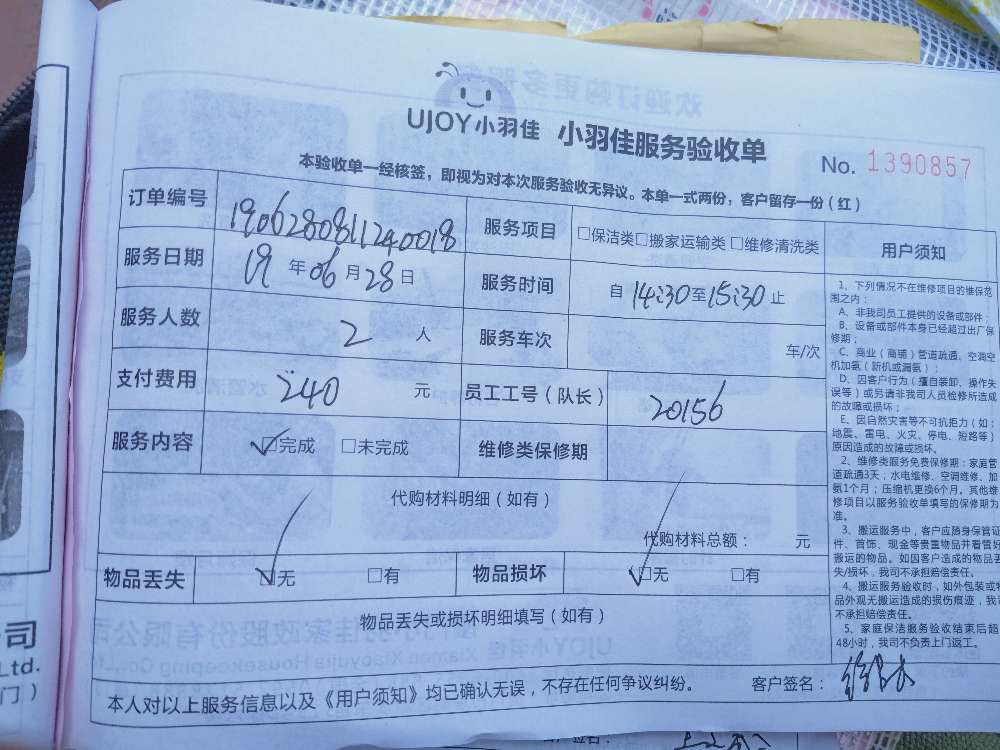 UJOY小羽佳 小羽佳服务验收单
No. 1390857
本验收单一经核签，即视为对本次服务验收无异议。本单一式两份，客户留存一份（红）
订单编号 1906280811240018 服务项目 □保洁类□搬家运输类 □维修清洗类
服务日期 19 年 06 月 28 日 服务时间 自 14:30 至 15:30 止
服务人数 2 人 服务车次 车/次
支付费用 240 元 员工工号（队长） 20156
服务内容 ☑完成 □未完成 维修类保修期
代购材料明细（如有）
代购材料总额： 元
物品丢失 ☑无 □有 物品损坏 ☑无 □有
物品丢失或损坏明细填写（如有）
用户须知
1、下列情况不在维修项目的维保范
围之内：
A、非我司员工提供的设备或部件；
B、设备或部件本身已经超过出厂保
修期；
C、商业（商铺）管道疏通、空调空
机加氨（新机或漏氨）；
D、因客户行为（擅自装卸、操作失
误等）或另请非我司人员检修所造成
的故障或损坏；
E、因自然灾害等不可抗拒力（如：
地震、雷电、火灾、停电、短路等）
原因造成的故障或损坏。
2、维修类服务免费保修期：家庭管
道疏通3天；水电维修、空调维修、加
氨1个月；压缩机更换6个月。其他维
修项目以服务验收单填写的保修期为
准。
3、搬运服务中，客户应随身保管证
件、首饰、现金等贵重物品并看管好
搬运的物品。如因客户造成的物品丢
失/损坏，我司不承担赔偿责任。
4、搬运服务验收时，如外包装或物
品外观无搬运造成的损伤痕迹，我司
不承担赔偿责任。
5、家庭保洁服务验收结束后超
48小时，我司不负责上门返工。
本人对以上服务信息以及《用户须知》均已确认无误，不存在任何争议纠纷。 客户签名：
司
Ltd.
门）